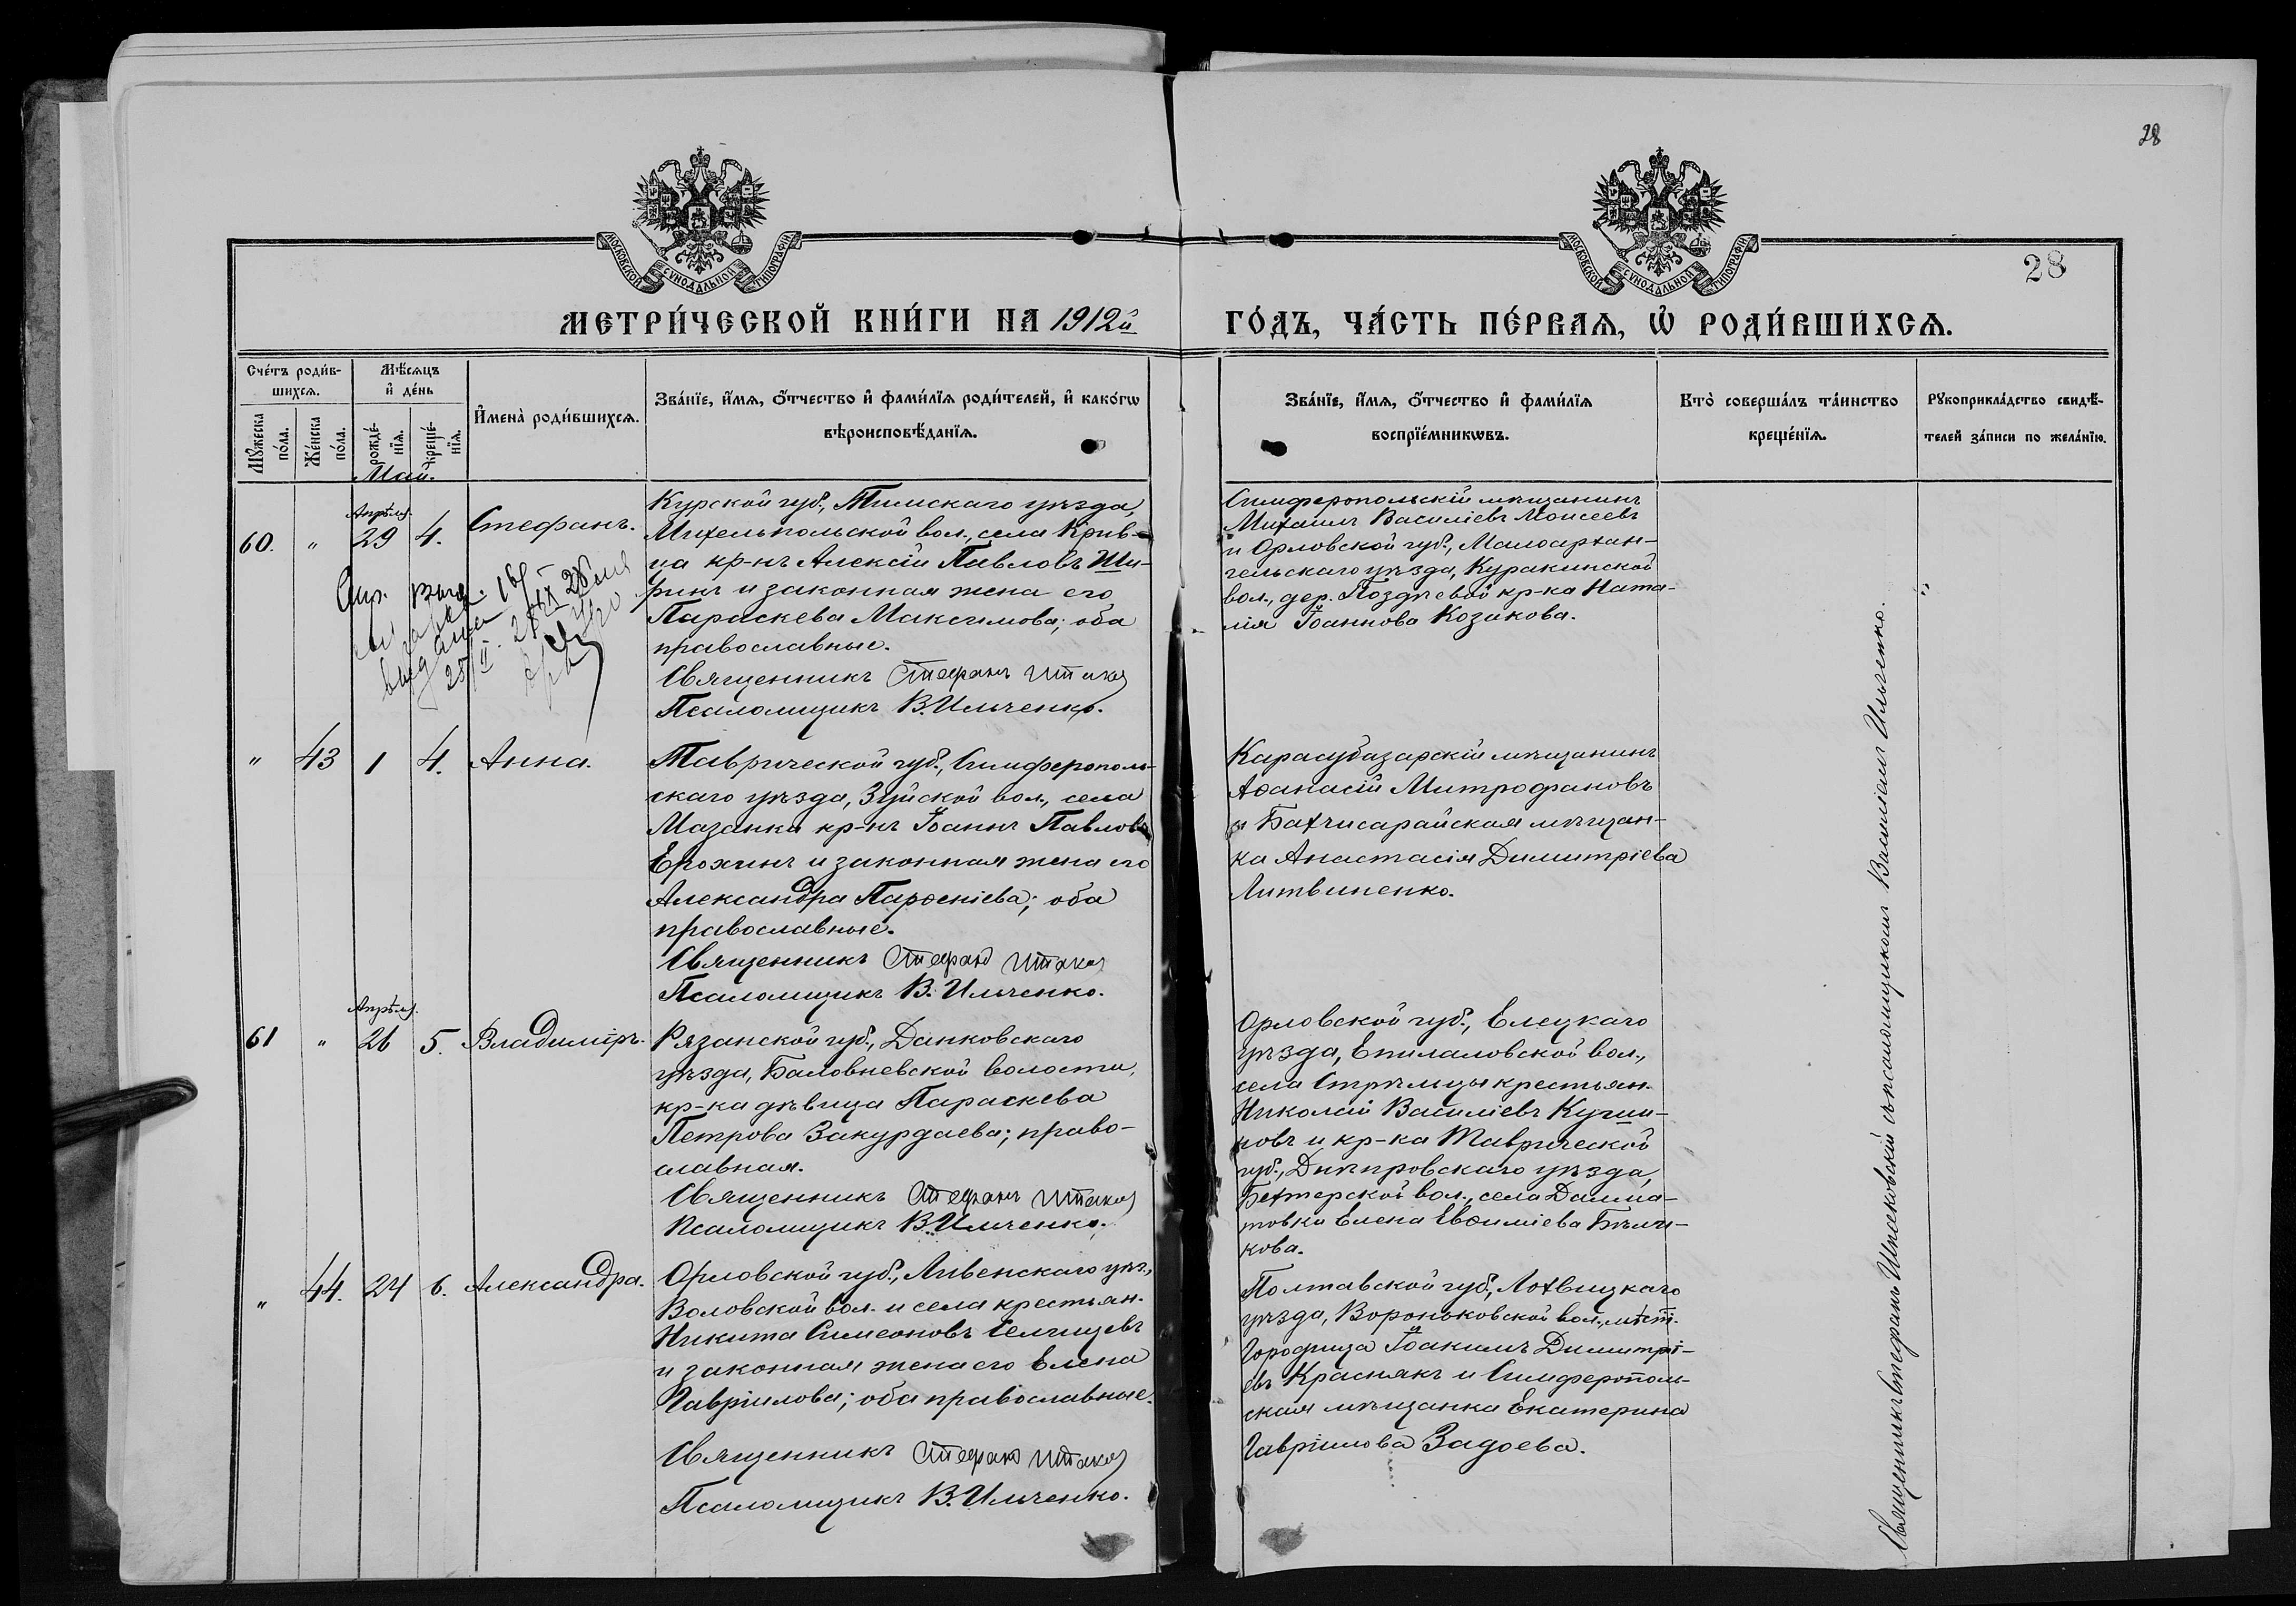 28
МОСКОВСКОЙ СѴНОДАЛЬНОЙ ТИПОГРАФІИ
МОСКОВСКОЙ СѴНОДАЛЬНОЙ ТИПОГРАФІИ
28
МЕТРИ́ЧЕСКОЙ КНИ́ГИ НА 1912й ГО́ДЪ, ЧА́СТЬ ПЕ́РВАЯ, Ѡ҆ РОДИ́ВШИХСЯ.
Сче́тъ роди́в-
шихся.
Мꙋжеска по́ла.
Же́нска по́ла.
Мѣ́сяцъ и҆ де́нь
рожде́-нїя.
креще́-нїя.
И҆мена̀ роди́вшихся.
Зва́нїе, и҆́мя, ѻ҆́тчество и҆ фами́лїя роди́телей, и҆ како́гѡ
вѣроисповѣ́данїя.
Зва́нїе, и҆́мя, ѻ҆́тчество и҆ фами́лїя
воспрїе́мникѡвъ.
Кто̀ соверша́лъ та́инство
креще́нїя.
Рꙋкоприкла́дство свидѣ́-
телей за́писи по жела́нїю.
Май.
60. " Апрѣля. 29 4. Стефанъ.
Курской губ., Тимскаго уѣзда,
Михельпольской вол., села Крив-
ца кр-нъ Алексій Павловъ Ши-
ринъ и законная жена его
Параскева Максимова; оба
православные.
Священникъ Стефанъ
Псаломщикъ В. Ильченко.
Симферопольскій мѣщанинъ
Михаилъ Василіевъ Моисеевъ
и Орловской губ., Малоархан-
гельскаго уѣзда, Куракинской
вол., дер. Поздѣевой кр-ка Ната-
лія Іоаннова Козакова.
"
" 43 1 4. Анна.
Таврической губ., Симферополь-
скаго уѣзда, Зуйской вол., села
Мазанка кр-нъ Іоаннъ Павловъ
Ерохинъ и законная жена его
Александра Парѳеніева; оба
православные.
Священникъ Стефанъ
Псаломщикъ В. Ильченко.
Карасубазарскій мѣщанинъ
Аѳанасій Митрофановъ
и Бахчисарайская мѣщан-
ка Анастасія Димитріева
Литвиненко.
61 " Апрѣля. 26 5. Владиміръ.
Рязанской губ., Данковскаго
уѣзда, Баловневской волости,
кр-ка дѣвица Параскева
Петрова Закурдаева; право-
славная.
Священникъ Стефанъ
Псаломщикъ В. Ильченко.
Орловской губ., Елецкаго
уѣзда, вол.,
села Стрѣльцы крестьян.
Николай Василіевъ
и кр-ка Таврической
губ., Днѣпровскаго уѣзда,
Бехтерской вол., села Далма-
товка Елена Евѳиміева Бѣли-
кова.
" 44. 24 6. Александра.
Орловской губ., Ливенскаго уѣз.,
Воловской вол. и села крестьян.
Никита Симеоновъ Селищевъ
и законная жена его Елена
Гавріилова; оба православные.
Священникъ Стефанъ
Псаломщикъ В. Ильченко.
Полтавской губ., Лохвицкаго
уѣзда, Вороньковской вол., мѣст.
Городища Іоакимъ Димитрі-
евъ Краснякъ и Симферополь-
ская мѣщанка Екатерина
Гавріилова Задоева.
Священникъ Стефанъ съ псаломщикомъ Василіемъ Ильченко.